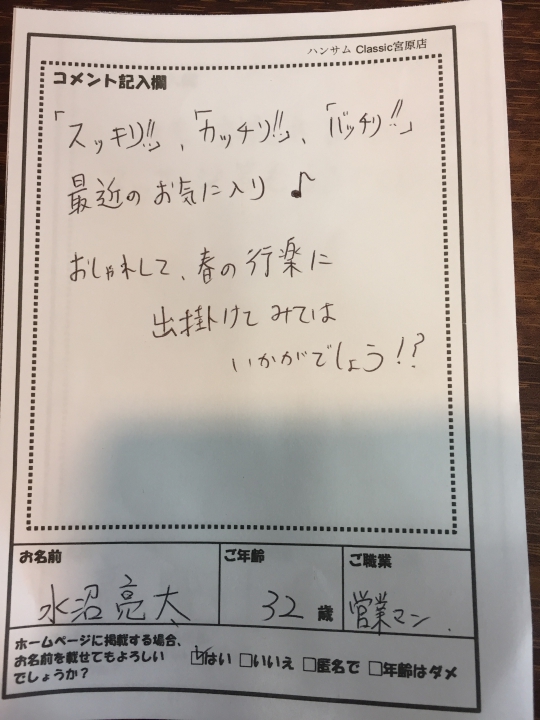 ハンサム Classic宮原店
コメント記入欄
「スッキリ!!」、「カッチリ!!」、「バッチリ!!」
最近のお気に入り♪
おしゃれして、春の行楽に
出掛けてみては
いかがでしょう!?
お名前
水沼亮太
ご年齢
32 歳
ご職業
営業マン.
ホームページに掲載する場合、
お名前を載せてもよろしい
でしょうか?
☑はい □いいえ □匿名で □年齢はダメ